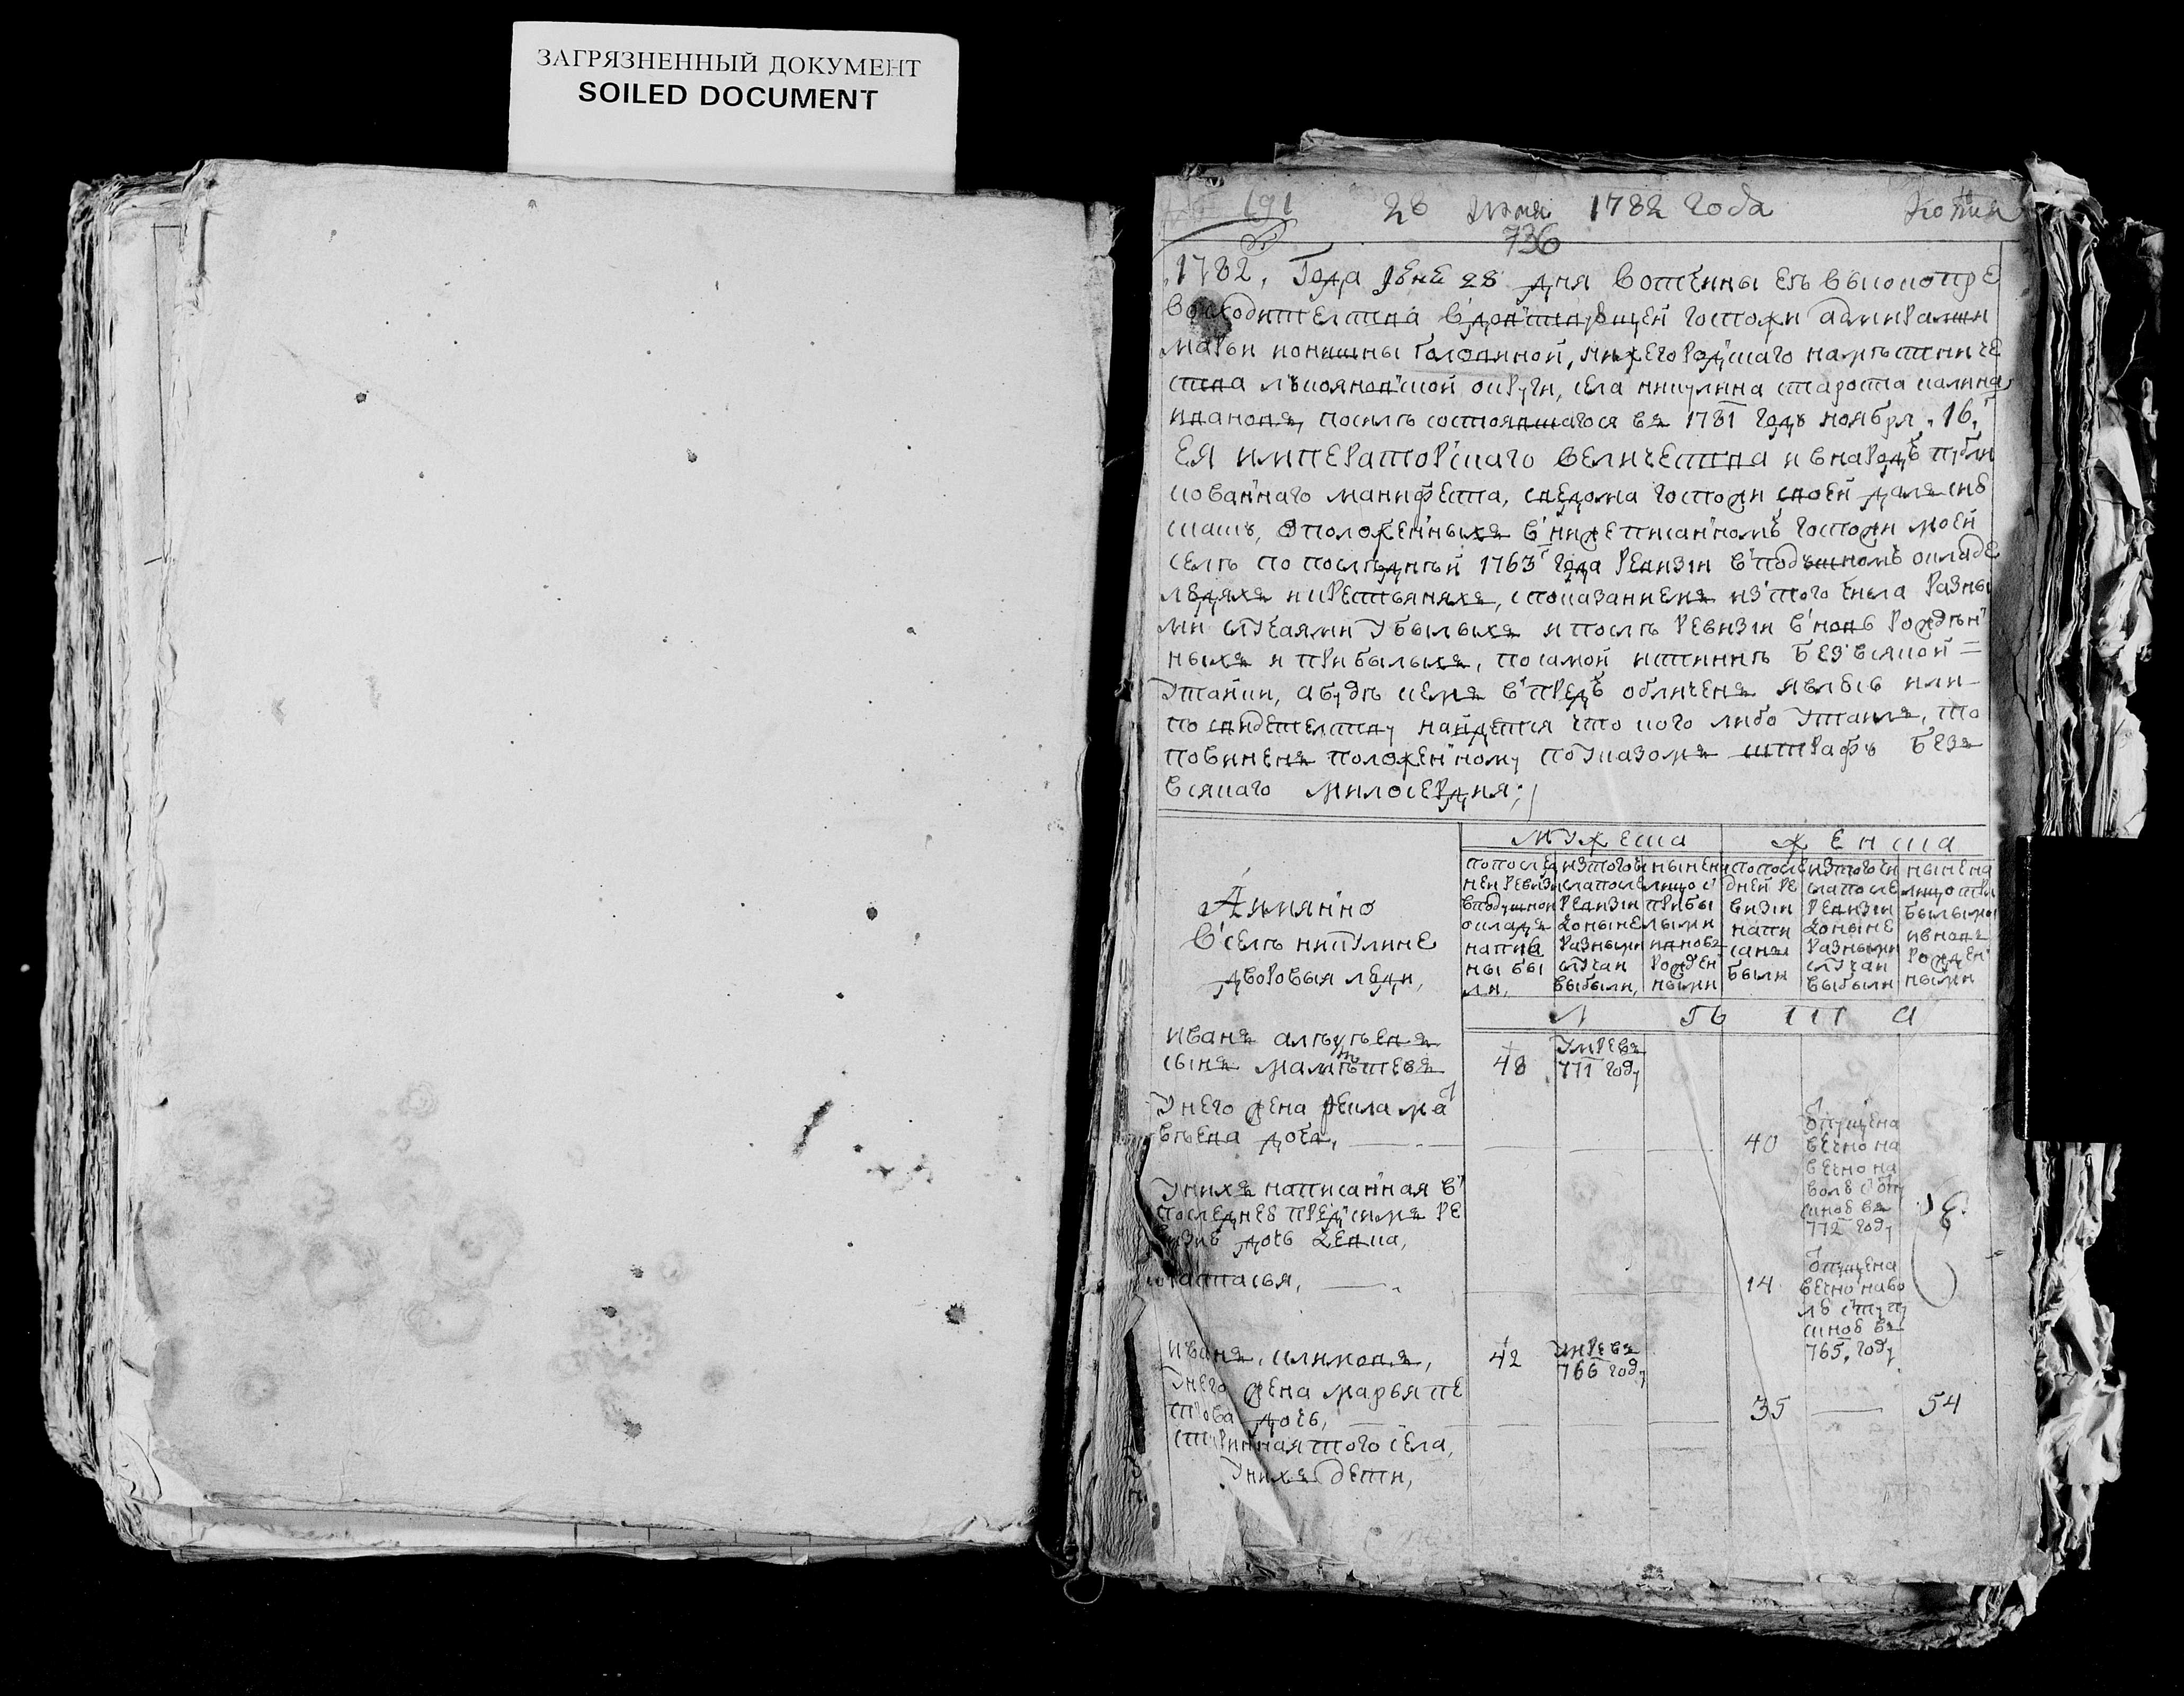 ЗАГРЯЗНЕННЫЙ ДОКУМЕНТ
SOILED DOCUMENT
191 28 июня 1782 года Копия
736
1782, Года Июня 28 дня вотчины Ея высокопре
восходительства вдовствующей госпожи адмиральши
марьи Головиной, нижегородскаго наместниче
ства лукояновской округи, села никулина староста
иванов, после состоявшагося въ 1781 году ноября 16,
ЕЯ ИМПЕРАТОРСкаго ВЕЛИЧЕСТВА и в народъ публи
кованнаго манифеста, сведома госпожи своей далъ сию
скаску, о положенныхъ в нижеписанномъ госпожи моей
селе по последней 1763 года ревизии в подушномъ окладе
людяхъ и крестьянахъ, с показаниемъ из того числа разны
ми случаями убылыхъ и после ревизии вновь рожден
ныхъ и прибылыхъ, по самой истинне без всякой
утайки, а буде кемъ впредь обличенъ явлюсь или
по свидетельству найдется что кого либо утаилъ, то
повиненъ положенному по указомъ штрафу безъ
всякаго милосердия;
МУЖЕСКА ЖЕНСКА
А имянно
в селе никулине
дворовыя люди,
по послед
ней ревизи
в подушном
окладе
написа
ны бы
ли,
из того чи
сла после
ревизии
до ныне
разными
случаи
выбыли,
ныне на
лицо с
прибы
лыми
и вновь
рожден
ными
по после
дней ре
визии
напи
саны
были
из того чи
сла после
ревизии
до ныне
разными
случаи
выбыли
ныне на
лицо с при
былыми
и вновь
рожден
ными
Л Ѣ Т А
иванъ
сынъ 48 умре въ
771 году
У него жена
дочь, 40 отпущена
вечно на
волю с отпу
скною въ
772 году
У них написанная в
последнею пред симъ ре
визию дочь девка,
настасья, 14 отпущена
вечно на во
лю с отпу
скною въ
765, году
иванъ, климовъ, 42 умре въ
766 году
У него жена марья пе
трова дочь, 35 54
старинная того села,
У них дети,